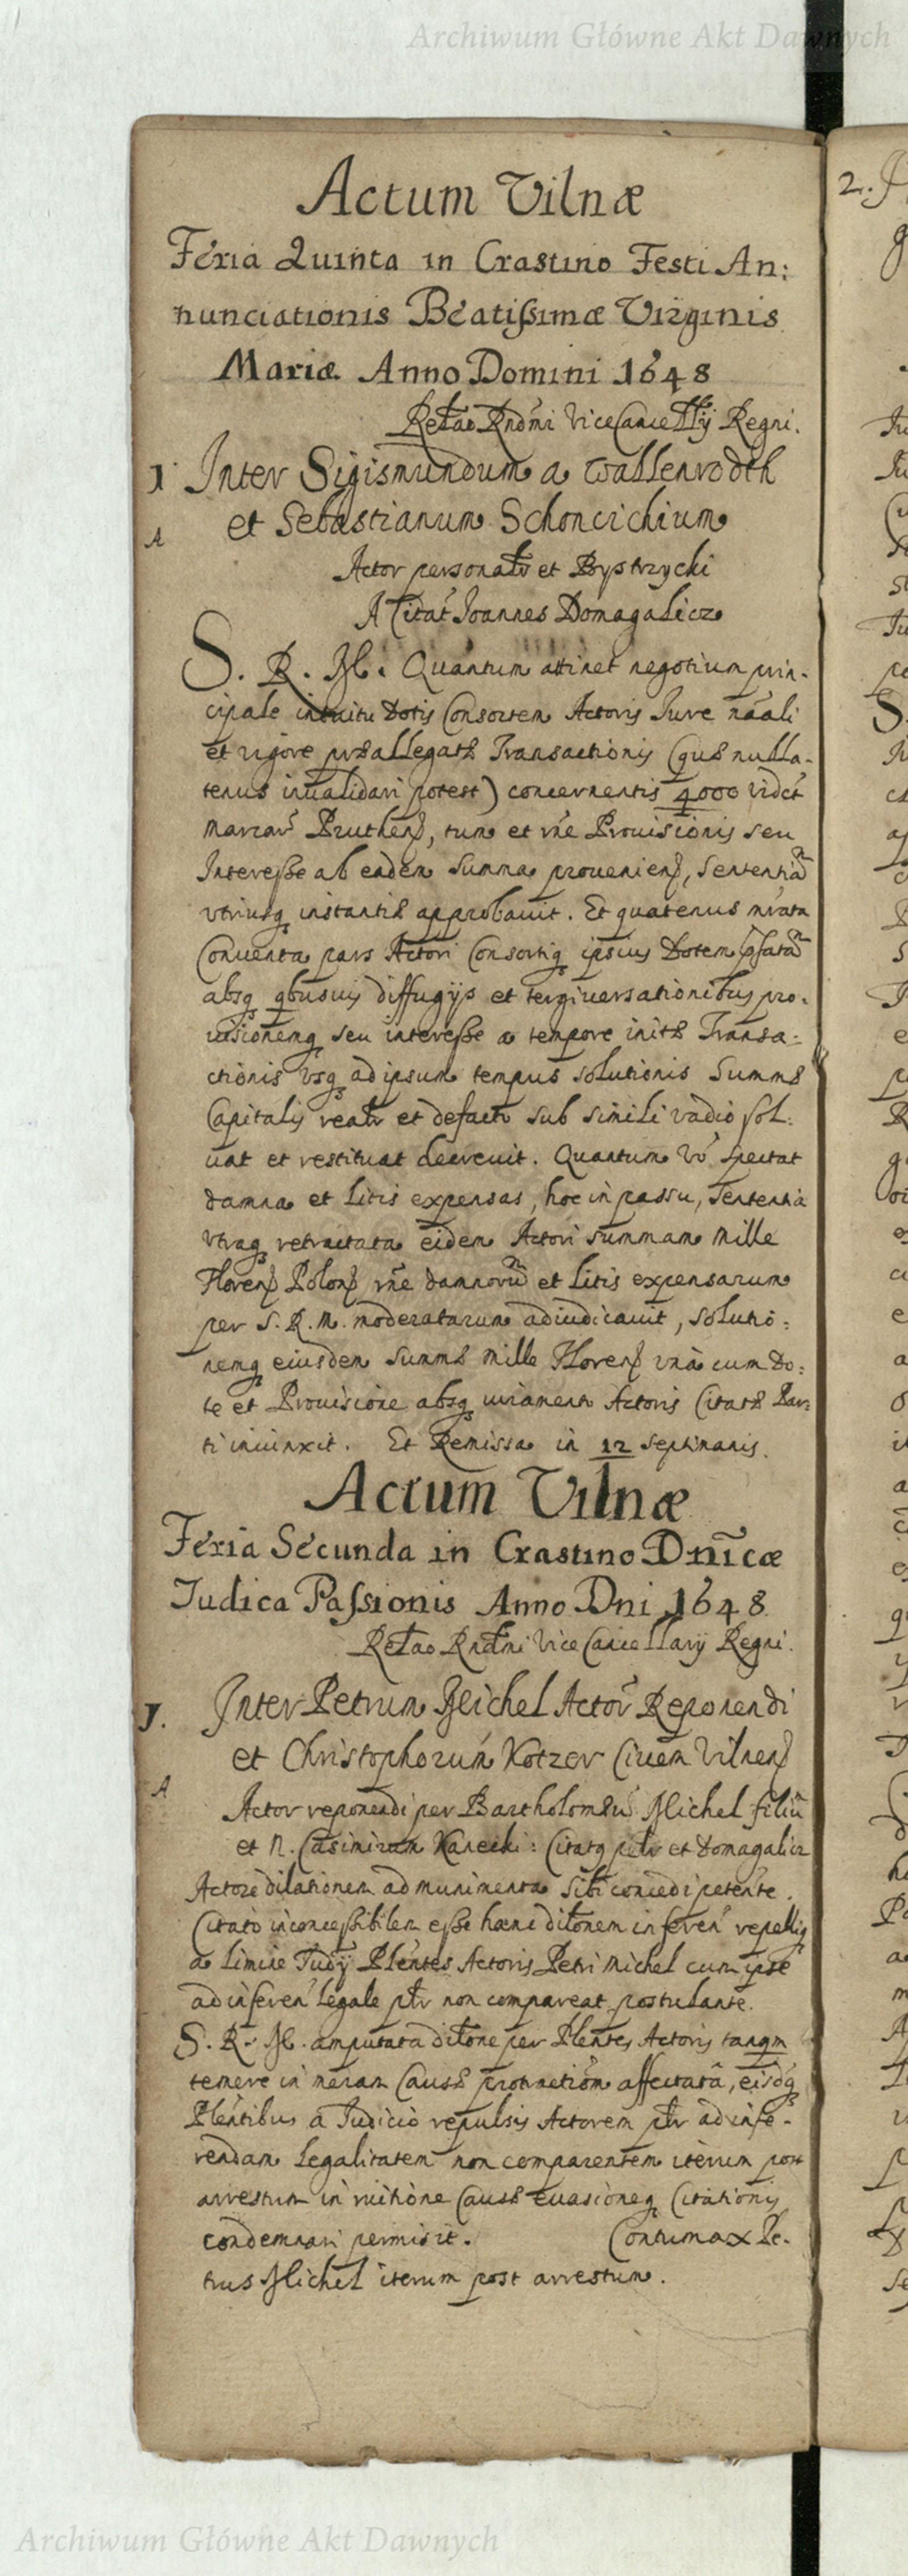 Archiwum Główne Akt Dawnych
Actum Vilnæ
Feria Quinta in Crastino Festi An:
nunciationis Beatißimæ Virginis
Mariæ Anno Domini 1648
Reľao Rndmi ViceCancellrij Regni.
1 Inter Sigismundum a Wallenrodth
et Sebastianum Schoncichium
A
Actor personalr et Bystrzycki
A Citat Joannes Domagalicz
S. R. M. Quantum attinet negotium prin-
cipale intuitu Dotis Consortem Actoris Jure nãali
et rigore præallegatæ Transactionis (quæ nulla-
tenus inualidari potest) concernentis 4000 vidct
marcar Pruthen, tum et rñe Prouisionis seu
Interesse ab eadem summa prouenien, sententiam
vtriusq instantiæ approbauit. Et quatenus
Conuenta pars Actori Consortiq ipsius Dotem
absq qbusuis diffugijs et tergiuersationibus pro-
uisionemq seu interesse a tempore initæ Transa-
ctionis vsq ad ipsum tempus solutionis Summæ
Capitalis realr et defacto sub simili vadio sol-
uat et restituat decreuit. Quantum vo spectat
damna et litis expensas, hoc in passu, sententia
vtraq retractata eidem Actori summam mille
Floren Polon rñe damnorum et litis expensarum
per S. R. M. moderatarum adiudicauit, solutio:
nemq eiusdem summæ mille Floren vna cum Do:
te et Prouisione absq iuramento Actoris Citatæ Par:
ti iniunxit. Et Remissa in 12 septimanis.
Actum Vilnæ
Feria Secunda in Crastino Dnicæ
Judica Passionis Anno Dni 1648
Reľao Rndmi ViceCancellarij Regni.
1. Inter Petrum Michel Actor Reponendi
et Christophorum Kotzer Ciuem Vilnen
A
Actor reponendi per Bartholomæu Michel filiu
et N. Casimirum Karecki: Citatq pslr et Domagalicz
Actore dilationem ad munimenta sibi concedi petente.
Citato inconcessibilem esse hanc diltonem in feren repelliq
a limine Judij Plentes Actoris Petri Michel cum ipse
ad inferen legale plr non compareat postulante.
S. R. M. amputata diltone per Plentes Actoris tanqm
temere in meram Causæ protractiom affectata, eisdq
Plentibus a Judicio repulsis Actorem plr ad infe-
rendam legalitatem non comparentem iterum post
arrestum in Causæ euasioneq Citationis
condemnari permisit. Contumax Pe-
trus Michel iterum post arrestum.
2.
Archiwum Główne Akt Dawnych